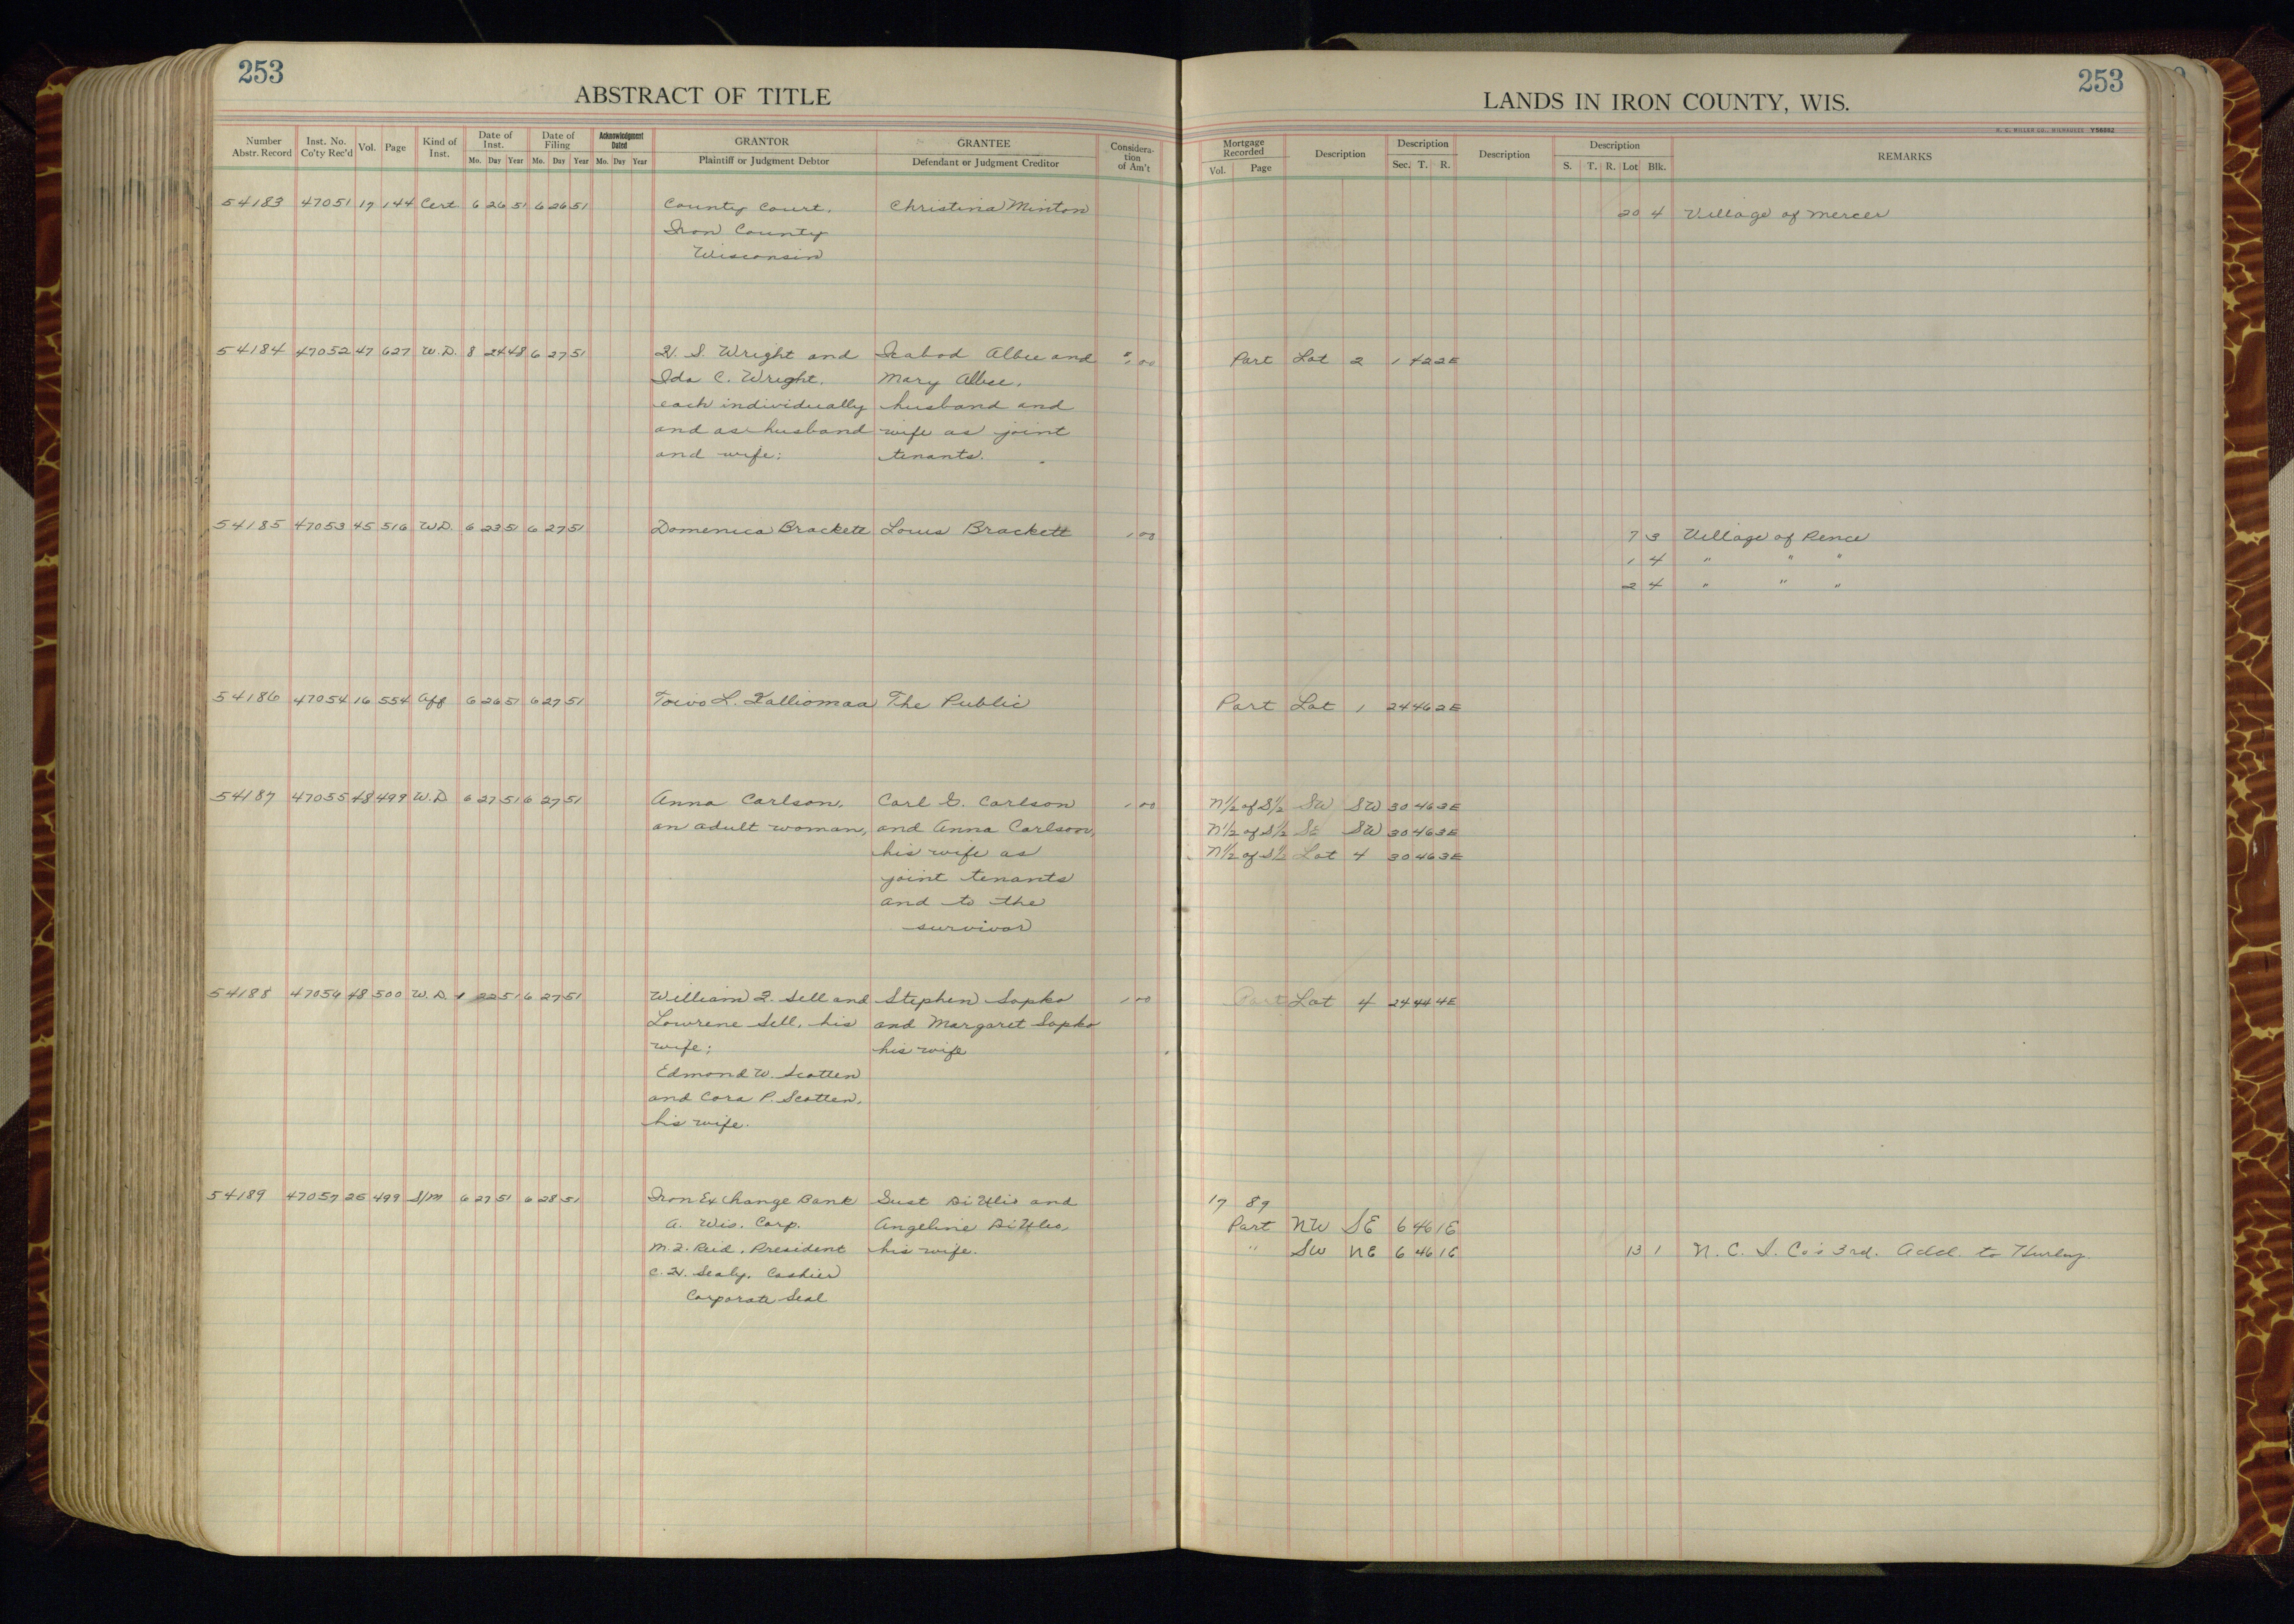 253
ABSTRACT OF TITLE
Number Abstr. Record
Inst. No. Co'ty Rec'd
Vol.
Page
Kind of Inst.
Date of Inst.
Mo. Day Year
Date of Filing
Mo. Day Year
Acknowledgment Dated
Mo. Day Year
GRANTOR
Plaintiff or Judgment Debtor
GRANTEE
Defendant or Judgment Creditor
Considera-
tion
of Am't
54183 47051 17 144 Cert 6 26 51 6 26 51 County Court, Christina Minton
Iron County
Wisconsin
54184 47052 47 627 W.D. 8 24 48 6 27 51 H. S. Wright and Icabod Albee and 1 00
Ida C. Wright, Mary Albee,
each individually husband and
and as husband wife as joint
and wife: tenants.
54185 47053 45 516 W.D. 6 23 51 6 27 51 Domenica Brackett Louis Brackett 1 00
54186 47054 16 554 Aff 6 26 51 6 27 51 Toivo L. Kalliomaa The Public
54187 47055 48 499 W.D. 6 27 51 6 27 51 Anna Carlson, Carl G. Carlson 1 00
an adult woman, and Anna Carlson,
his wife as
joint tenants
and to the
survivor
54188 47056 48 500 W.D. 1 22 51 6 27 51 William F. Sell and Stephen Sopko 1 00
Lowrene Sell, his and Margaret Sopko
wife; his wife
Edmond W. Scotten
and Cora P. Scotten,
his wife.
54189 47057 25 499 S/M 6 27 51 6 28 51 Iron Exchange Bank Gust DiUlio and
A. Wis. Corp. Angeline DiUlio,
M.F. Reid, President his wife.
C.H. Sealy, Cashier
Corporate Seal
253
LANDS IN IRON COUNTY, WIS.
H. C. MILLER CO., MILWAUKEE
Mortgage Recorded
Vol. Page
Description
Description
Sec. T. R.
Description
Description
S. T. R. Lot Blk.
REMARKS
20 4 Village of Mercer
Part Lot 2 1 42 2E
7 3 Village of Pence
1 4 " " "
2 4 " " "
Part Lot 1 24 46 2E
N½ of S½ SW SW 30 46 3E
N½ of S½ SE SW 30 46 3E
N½ of S½ Lot 4 30 46 3E
Part Lot 4 24 44 4E
17 89
Part NW SE 6 46 1E
" SW NE 6 46 1E 13 1 N. C. I. Co's 3rd. Add. to Hurley.